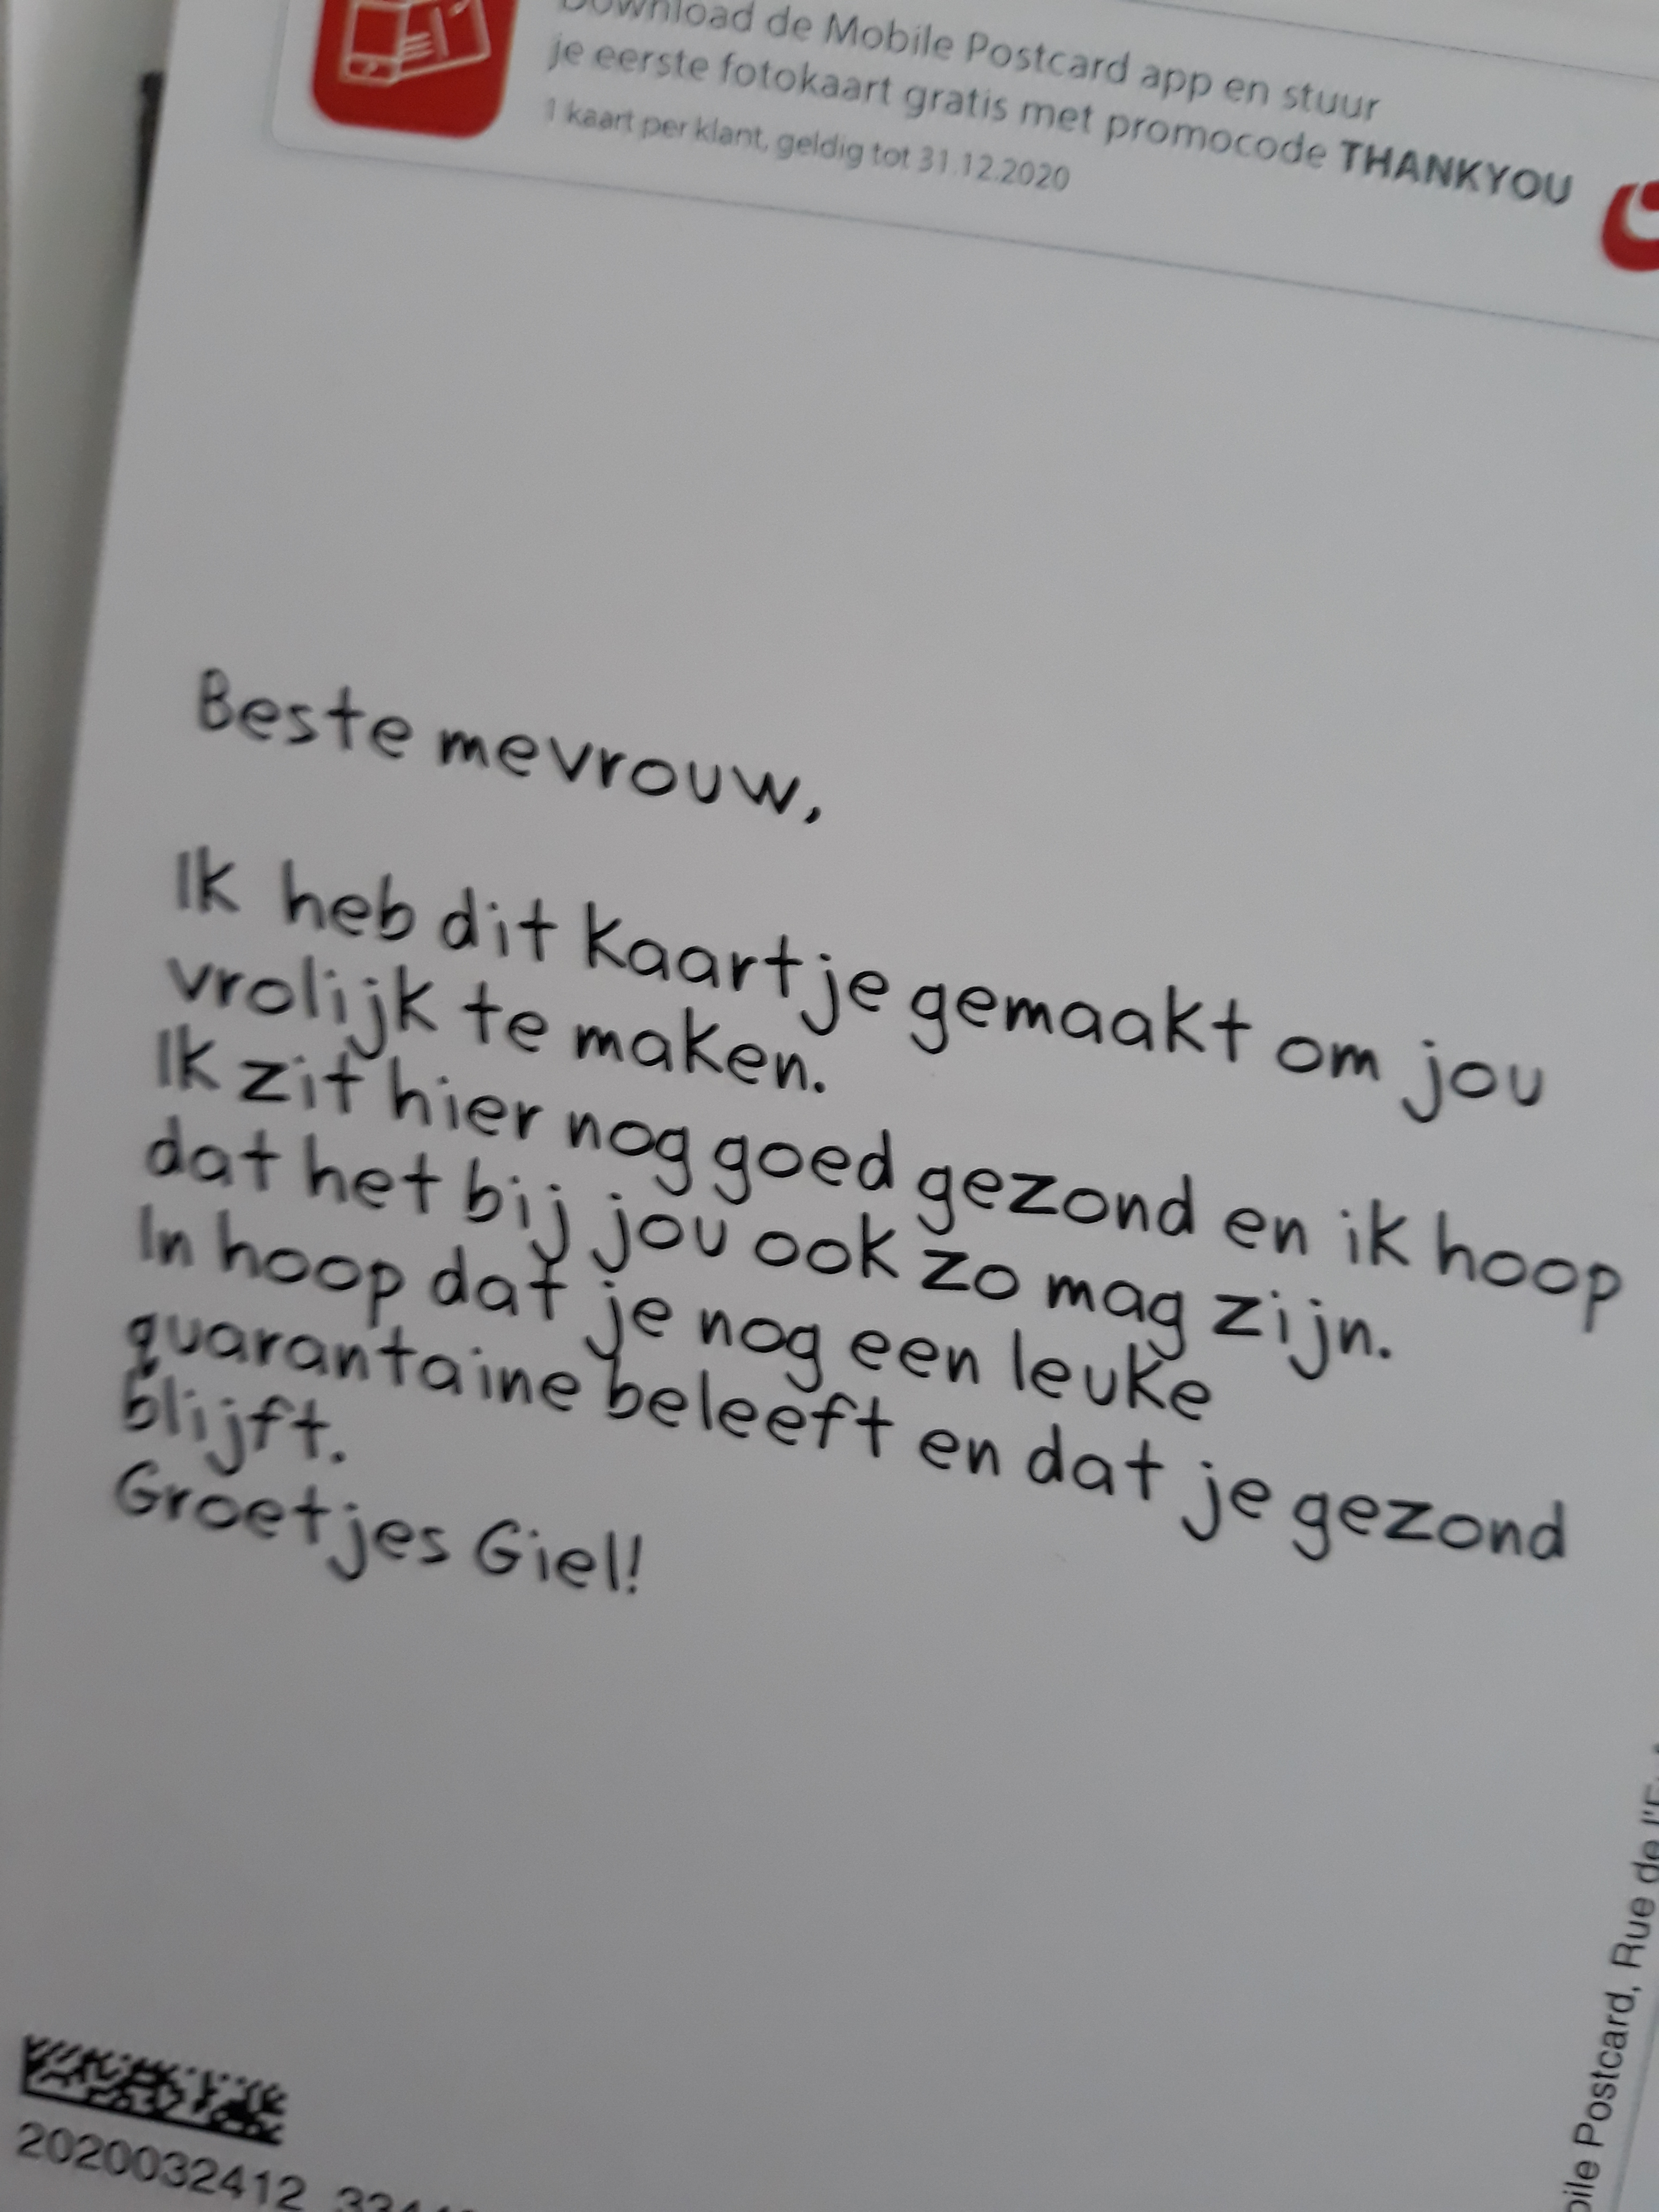 Download de Mobile Postcard app en stuur
je eerste fotokaart gratis met promocode THANKYOU
1 kaart per klant, geldig tot 31.12.2020
Beste mevrouw,
Ik heb dit kaartje gemaakt om jou
vrolijk te maken.
Ik zit hier nog goed gezond en ik hoop
dat het bij jou ook zo mag zijn.
In hoop dat je nog een leuke
quarantaine beleeft en dat je gezond
blijft.
Groetjes Giel!
2020032412
Postcard, Rue de